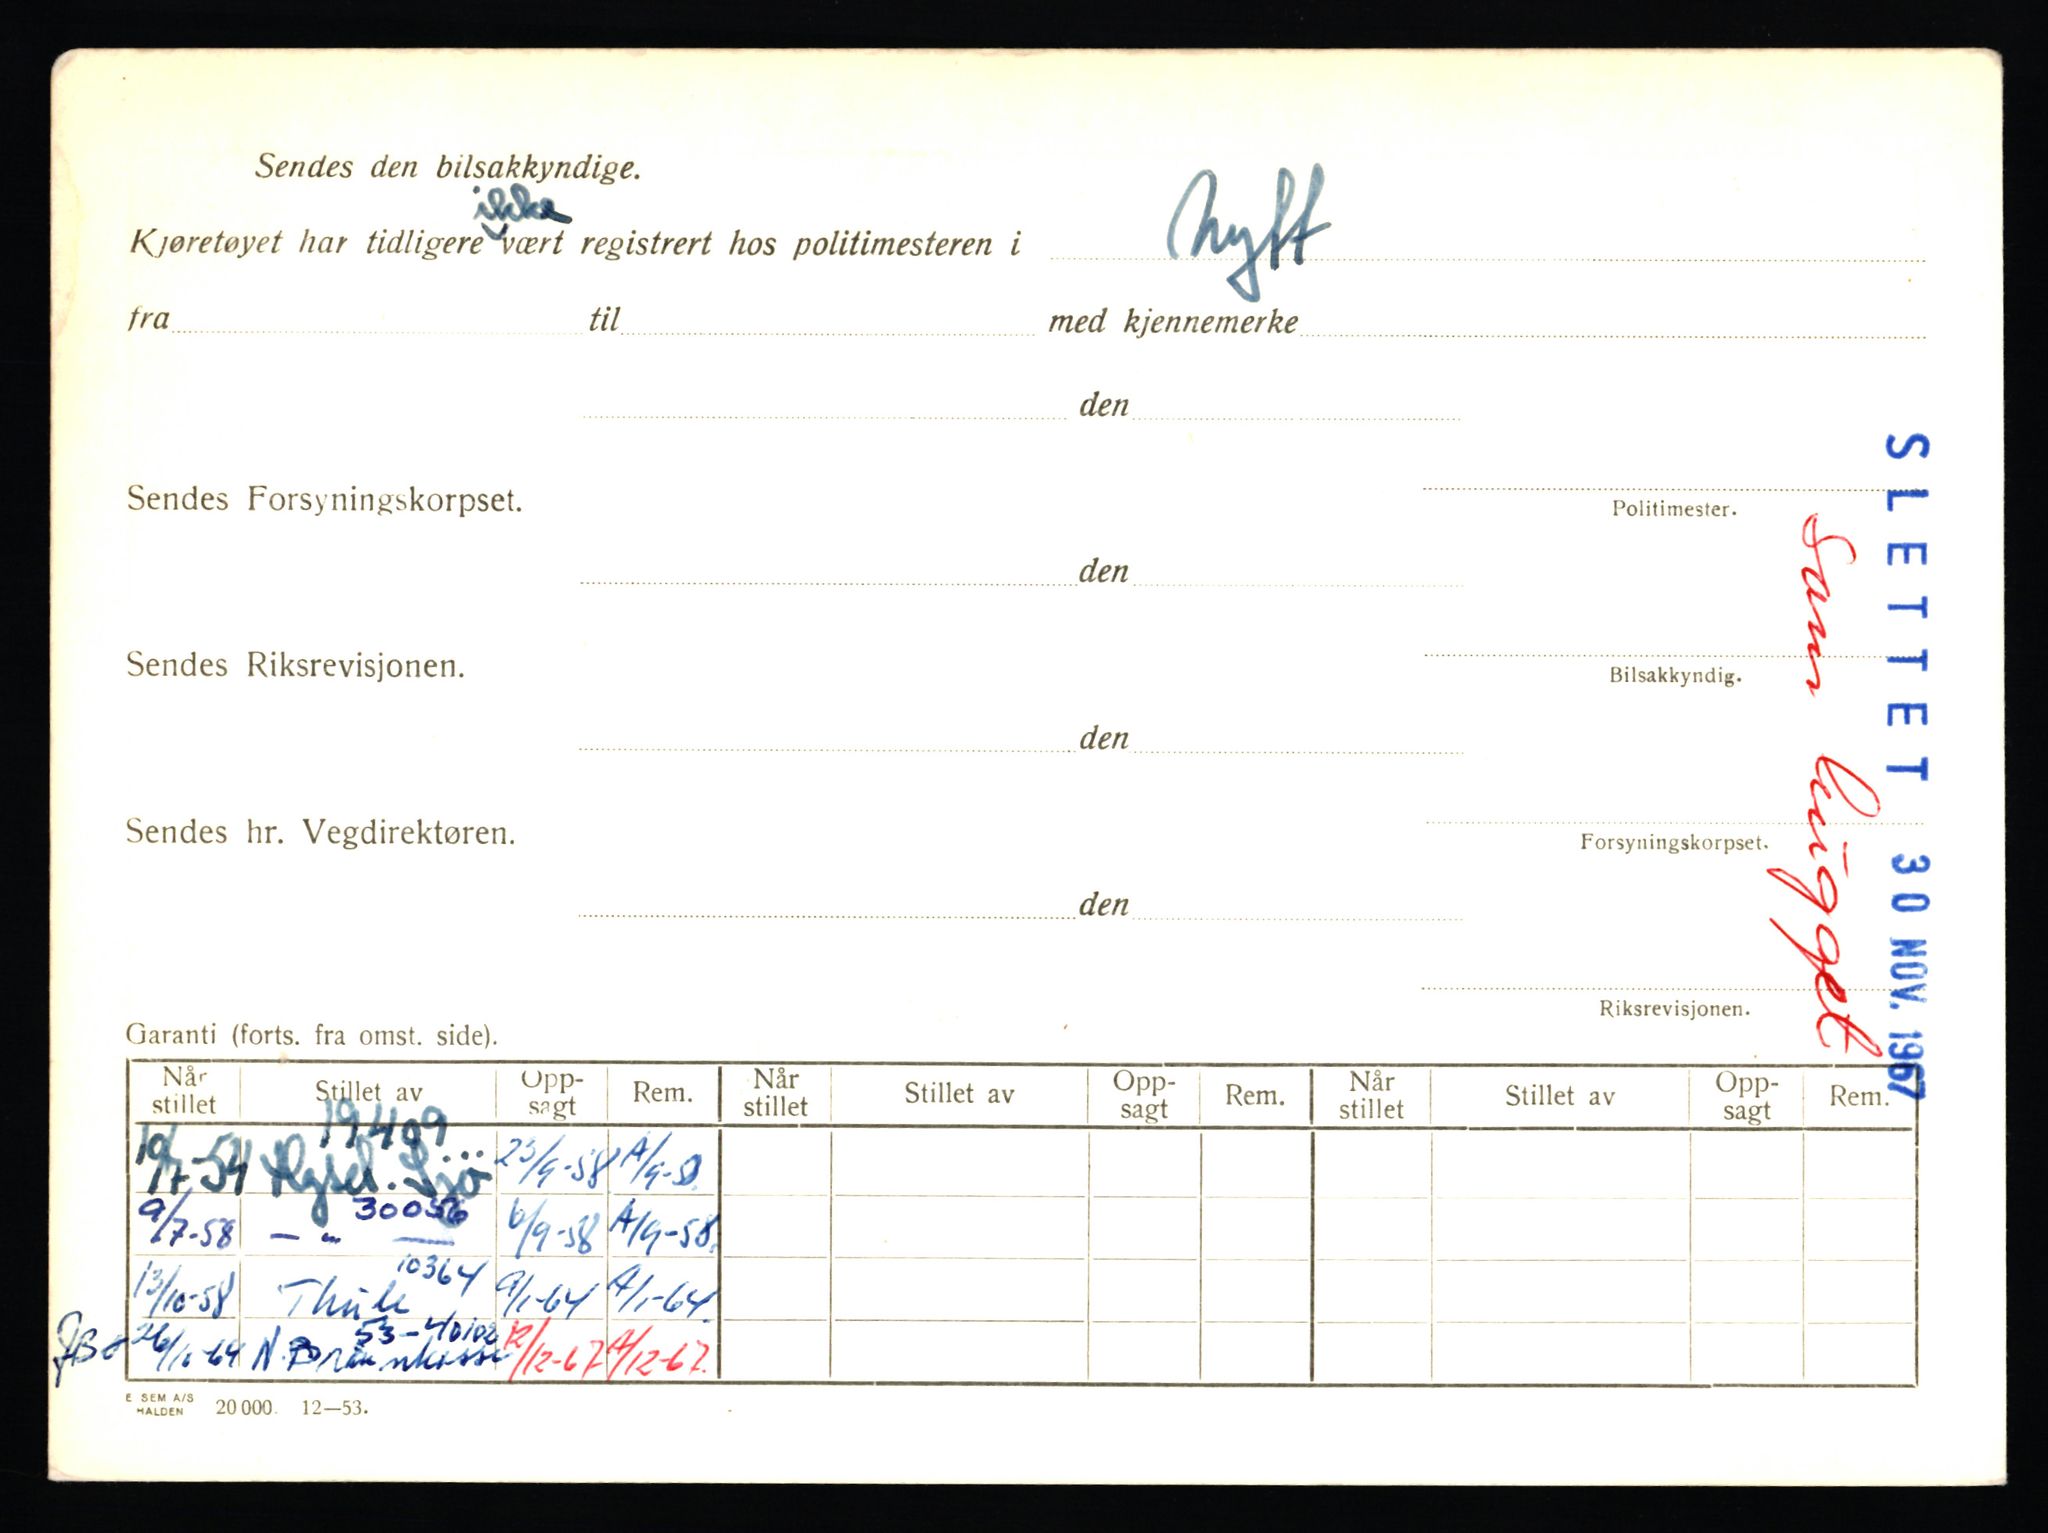 Sendes den bilsakkyndige.
ikke
Kjøretøyet har tidligere vært registrert hos politimesteren i Nytt
fra til med kjennemerke
den
Sendes Forsyningskorpset.
Politimester.
den
Sendes Riksrevisjonen.
Bilsakkyndig.
den
Sendes hr. Vegdirektøren.
Forsyningskorpset.
den
Riksrevisjonen.
SLETTET 30 NOV. 1967
Som hugget
Garanti (forts. fra omst. side).
Når stillet Stillet av Opp-sagt Rem. Når stillet Stillet av Opp-sagt Rem. Når stillet Stillet av Opp-sagt Rem.
19409
19/7-54 23/9-58 A/9-58
30056
9/7-58 — " — 6/9-58 A/9-58.
10364
13/10-58 Thule 9/1-64 A/1-64.
53-40102
N. Brannkasse 12/12-67 A/12-67.
E SEM A/S
HALDEN 20 000. 12—53.